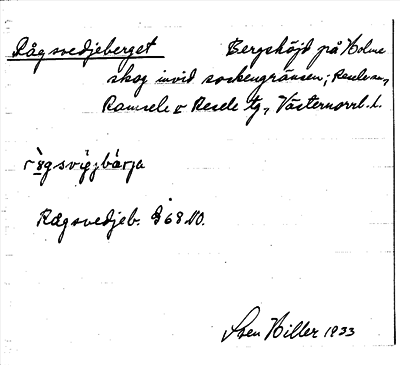 Rågsvedjeberget Bergshöjd på Holme
skog invid sockengränsen;
Ramsele o Resele tg, Västernorrl. l.
Rågsvedjeb. G 68 NO.
Sven Hiller 1933